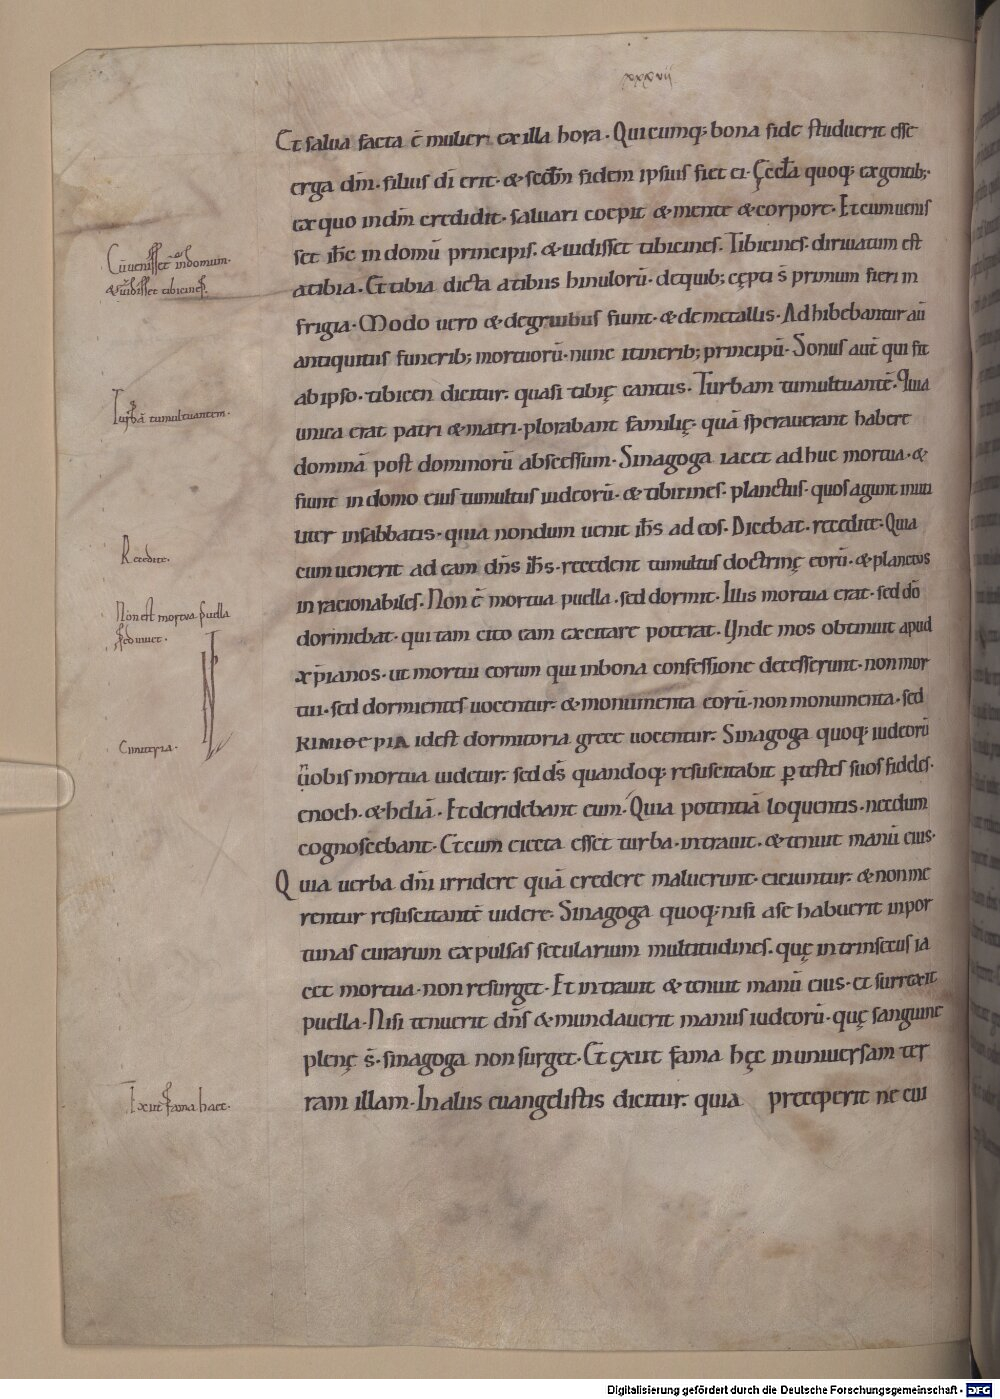 xxxvii
Et salua facta ē mulier ex illa hora. Quicumq; bona fide studuerit esse
erga dm̄. filius dī erit. & scd̄m fidem ipsius fiet ei. Ęccl̄a quoq; ex gentib;.
ex quo in dm̄ credidit. saluari coepit & mente & corpore. Et cum uenis
set ih̄c in domū principis. & uidisset tibicines. Tibicines. diriuatum est
a tibia. Et tibia dicta a tibiis hinulorū. de quib; cępti s̄ primum fieri in
frigia. Modo uero & de gruibus fiunt. & de metallis. Adhibebantur aū
antiquitus funerib; mortuorū. nunc itinerib; principū. Sonus aut̄ qui fit
ab ipso. tibicen dicitur. quasi tibię cantus. Turbam tumultuantē. Quia
unica erat patri & matri. plorabant familię. quā sperauerant habere
dominā post dominorū abscessum. Sinagoga iacet adhuc mortua. &
fiunt in domo eius tumultus iudeorū. & tibicines. planctus. quos agunt inuti
liter in sabbatis. quia nondum uenit ih̄s ad eos. Dicebat. recedite. Quia
cum uenerit ad eam dn̄s ih̄s. recedent tumultus doctrinę eorū. & planctus
inracionabiles. Non ē mortua puella. sed dormit. Illis mortua erat. sed dō
dormiebat. qui tam cito eam excitare poterat. Unde mos obtinuit apud
xp̄ianos. ut mortui eorum qui in bona confessione decesserunt. non mor
tui. sed dormientes uocentur. & monumenta eorū. non monumenta. sed
KIMIΘEPIA idest dormitoria grece uocentur. Sinagoga quoq; iudeorū
nobis mortua uidetur. sed ds̄ quandoq; resuscitabit p̱ testes suos fideles.
enoch. & heliā. Et deridebant eum. Quia potentiā loquentis. necdum
cognoscebant. Et cum eiecta esset turba. intrauit. & tenuit manū eius.
Quia uerba dn̄i irridere quā credere maluerunt. eiciuntur. & non me
rentur resuscitantē uidere. Sinagoga quoq; nisi a se habuerit inpor
tunas curarum expulsas secularium multitudines. quę intrinsecus ia
cet mortua. non resurget. Et intrauit & tenuit manū eius. et surrexit
puella. Nisi tenuerit dn̄s & mundauerit manus iudeorū. quę sanguine
plenę s̄. sinagoga non surget. Et exiit fama hęc in uniuersam ter
ram illam. In aliis euangelistis dicitur. quia preceperit ne cui
Cū uenisset in domum.
& uidisset tibicines.
Turbā tumultuantem.
Recedite.
Non est mortua puella
sed uiuet.
Cimiteria.
Exiit fama haec.
Digitalisierung gefördert durch die Deutsche Forschungsgemeinschaft - DFG